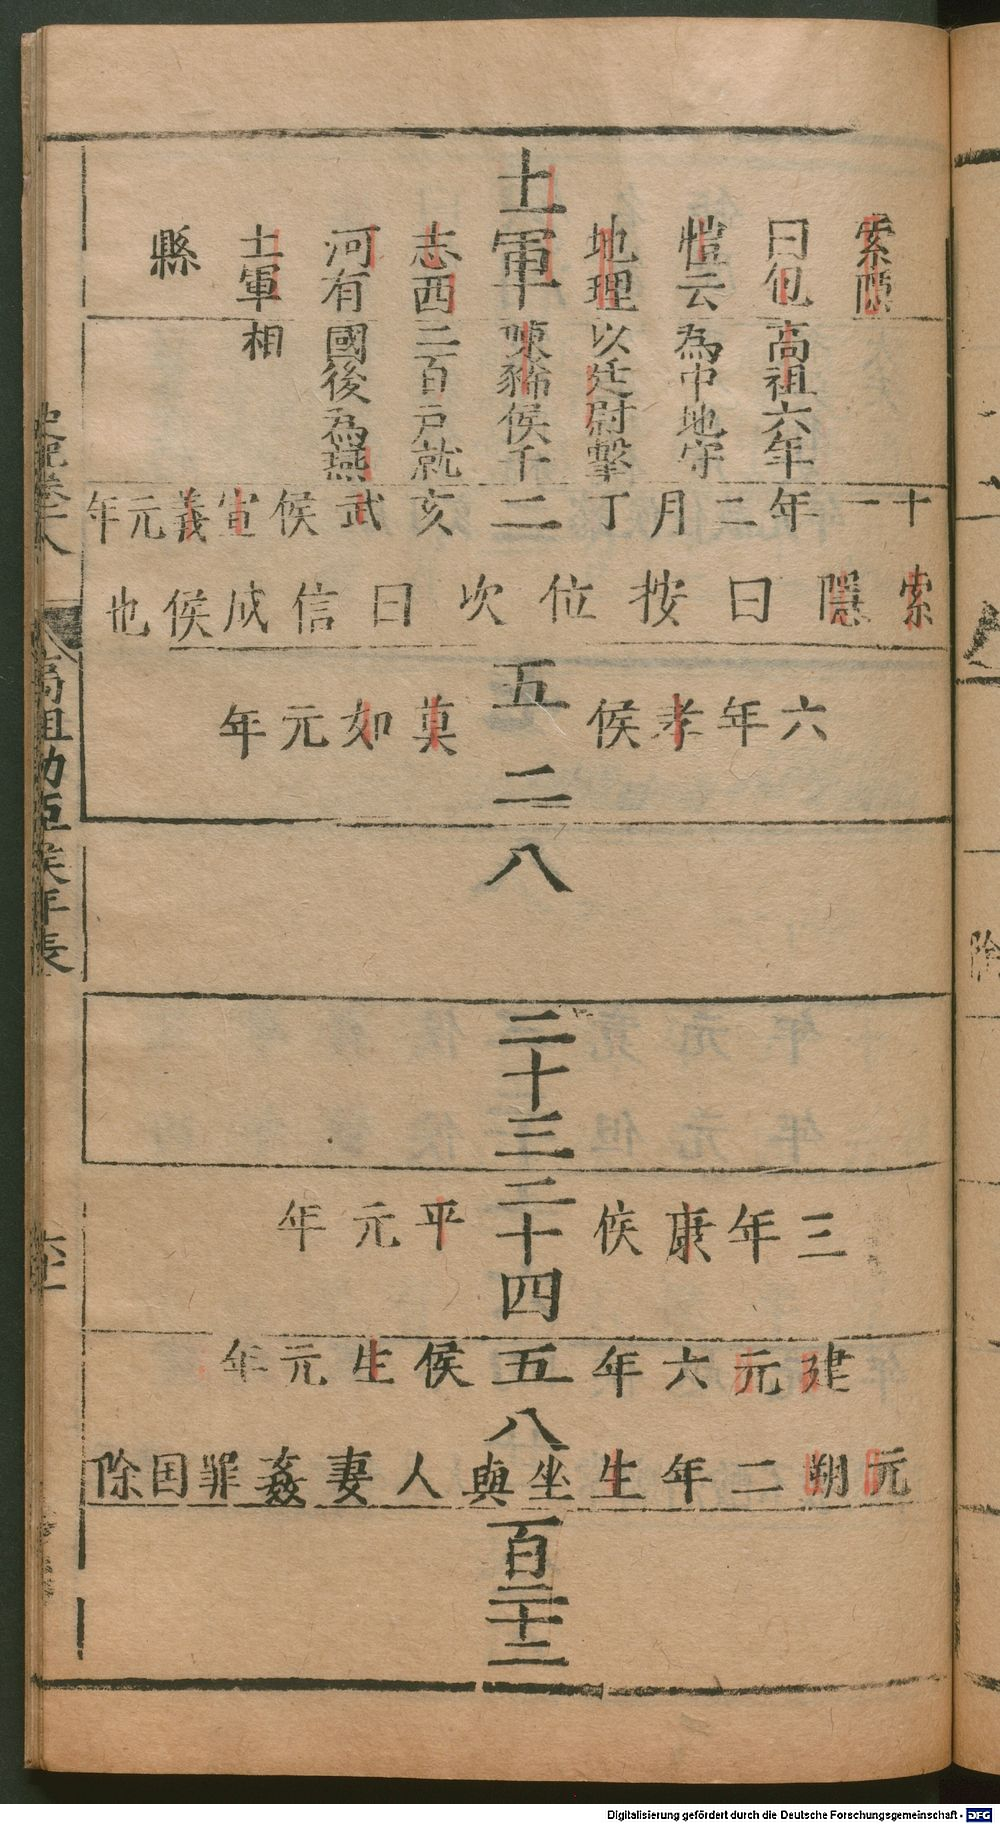 索隱
曰包
愷云
地理
土軍
志西
河有
土軍
縣
高祖六年
為中地守
以廷尉擊
陳豨侯千
二百戶就
國後為燕
相
十一年二月丁亥武侯宣義元年
二
索隱曰按位次曰信成侯也
五
六年孝侯莫如元年
二
八
二十三
三年康侯平元年
二十四
建元六年侯生元年
五
八
元朔二年生坐與人妻姦罪国除
百二十二
史記卷十八
高祖功臣侯年表
Digitalisierung gefördert durch die Deutsche Forschungsgemeinschaft - DFG